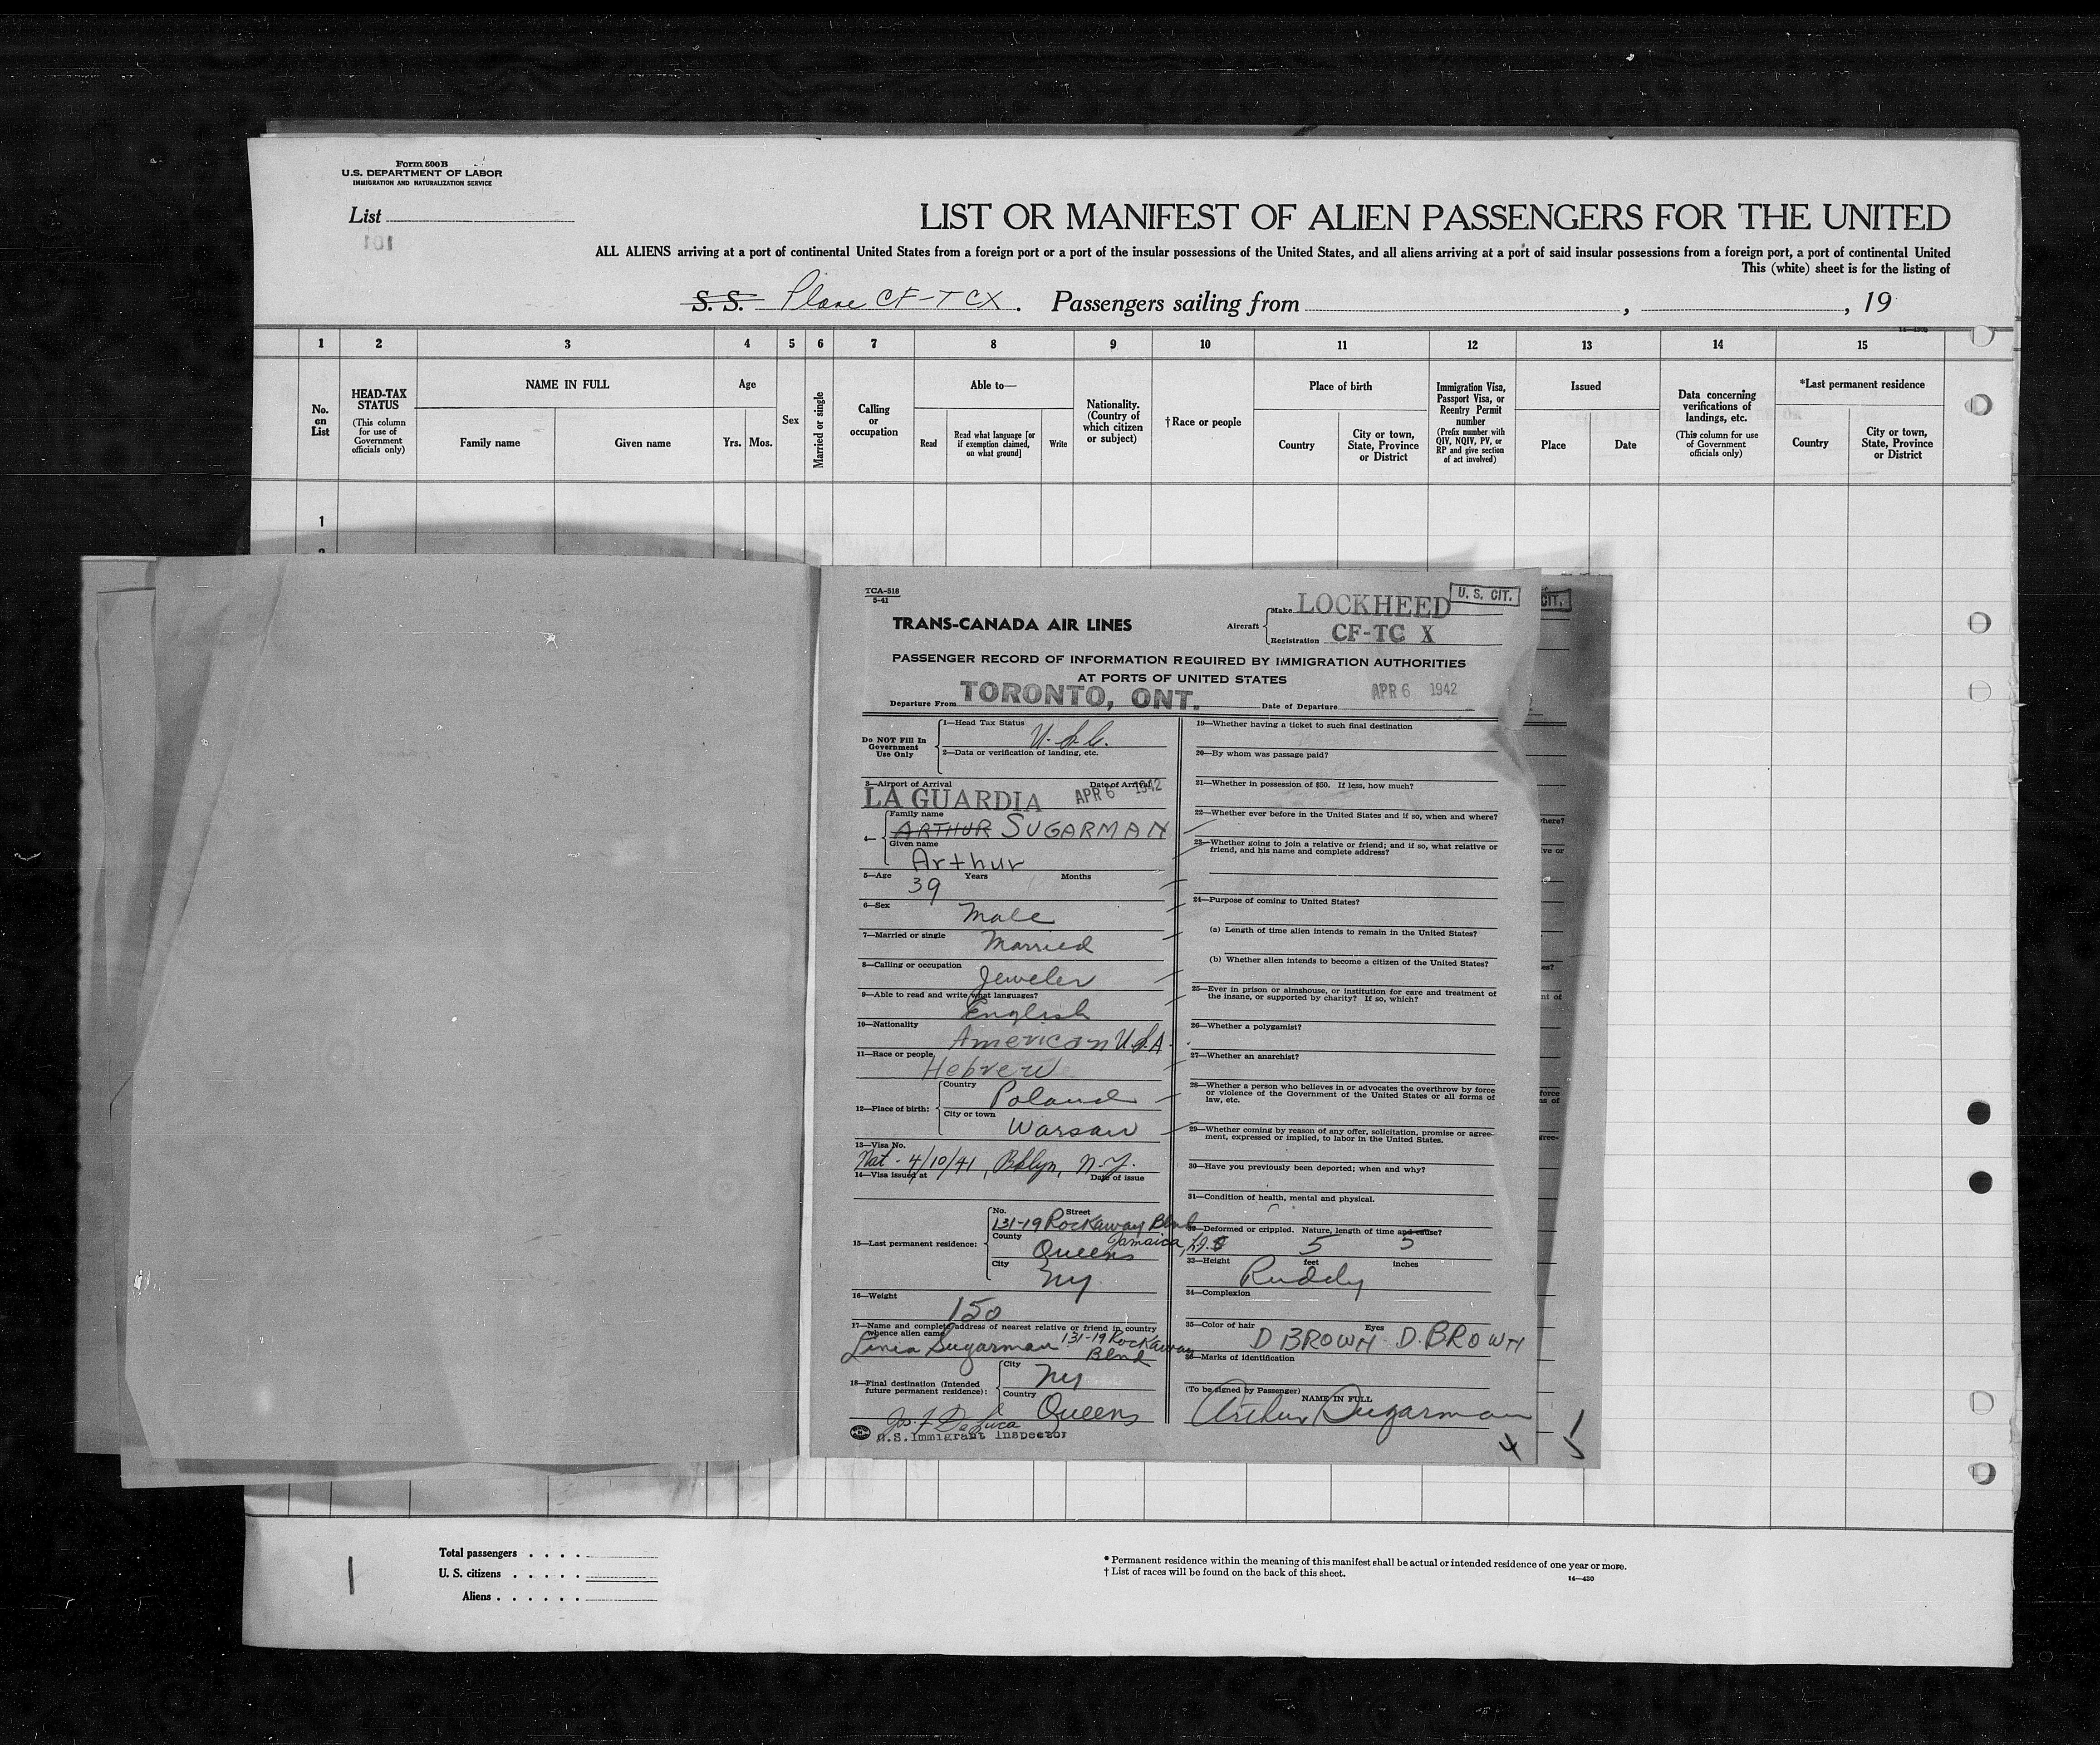 Form 500B
U.S. DEPARTMENT OF LABOR
IMMIGRATION AND NATURALIZATION SERVICE
List
101
LIST OR MANIFEST OF ALIEN PASSENGERS FOR THE UNITED
ALL ALIENS arriving at a port of continental United States from a foreign port or a port of the insular possessions of the United States, and all aliens arriving at a port of said insular possessions from a foreign port, a port of continental United
This (white) sheet is for the listing of
S. S. Plane CF-TCX. Passengers sailing from , , 19
1 2 3 4 5 6 7 8 9 10 11 12 13 14 15
No. on List
HEAD-TAX STATUS
(This column for use of Government officials only)
NAME IN FULL
Family name
Given name
Age
Yrs. Mos.
Sex
Married or single
Calling or occupation
Able to—
Read
Read what language [or if exemption claimed, on what ground]
Write
Nationality. (Country of which citizen or subject)
† Race or people
Place of birth
Country
City or town, State, Province or District
Immigration Visa, Passport Visa, or Reentry Permit number
(Prefix number with QIV, NQIV, PV, or RP and give section of act involved)
Issued
Place
Date
Data concerning verifications of landings, etc.
(This column for use of Government officials only)
*Last permanent residence
Country
City or town, State, Province or District
1
TCA-518
5-41
TRANS-CANADA AIR LINES
Aircraft
Make LOCKHEED
Registration CF-TC X
U. S. CIT.
CIT.
PASSENGER RECORD OF INFORMATION REQUIRED BY IMMIGRATION AUTHORITIES
AT PORTS OF UNITED STATES
Departure From TORONTO, ONT. Date of Departure APR 6 1942
Do NOT Fill In Government Use Only
1—Head Tax Status
U.S.C.
2—Data or verification of landing, etc.
3—Airport of Arrival Date of Arrival
LA GUARDIA APR 6 1942
4—
Family name
ARTHUR SUGARMAN
Given name
Arthur
5—Age Years Months
39
6—Sex
Male
7—Married or single
Married
8—Calling or occupation
Jeweler
9—Able to read and write what languages?
English
10—Nationality
American U.S.A.
11—Race or people
Hebrew
12—Place of birth:
Country
Poland
City or town
Warsaw
13—Visa No.
Nat - 4/10/41, Bklyn, N.Y.
14—Visa issued at Date of issue
15—Last permanent residence:
No. Street
131-19 Rockaway Blvd
County
Queens Jamaica, L.I.
City
NY
16—Weight
150
17—Name and complete address of nearest relative or friend in country whence alien came
Sugarman 131-19 Rockaway
Blvd
18—Final destination (Intended future permanent residence):
City
NY
Country
Queens
Jos. F. DeLuca
U.S. Immigrant Inspector
19—Whether having a ticket to such final destination
20—By whom was passage paid?
21—Whether in possession of $50. If less, how much?
22—Whether ever before in the United States and if so, when and where?
23—Whether going to join a relative or friend; and if so, what relative or
friend, and his name and complete address?
24—Purpose of coming to United States?
(a) Length of time alien intends to remain in the United States?
(b) Whether alien intends to become a citizen of the United States?
25—Ever in prison or almshouse, or institution for care and treatment of
the insane, or supported by charity? If so, which?
26—Whether a polygamist?
27—Whether an anarchist?
28—Whether a person who believes in or advocates the overthrow by force
or violence of the Government of the United States or all forms of
law, etc.
29—Whether coming by reason of any offer, solicitation, promise or agree-
ment, expressed or implied, to labor in the United States.
30—Have you previously been deported; when and why?
31—Condition of health, mental and physical.
32—Deformed or crippled. Nature, length of time and cause?
5 5
33—Height feet inches
Ruddy
34—Complexion
35—Color of hair Eyes
D BROWN D. BROWN
36—Marks of identification
(To be signed by Passenger)
NAME IN FULL
Arthur Sugarman
4
5
1
Total passengers . . . .
U. S. citizens . . . . .
Aliens . . . . . .
* Permanent residence within the meaning of this manifest shall be actual or intended residence of one year or more.
† List of races will be found on the back of this sheet.
14—430